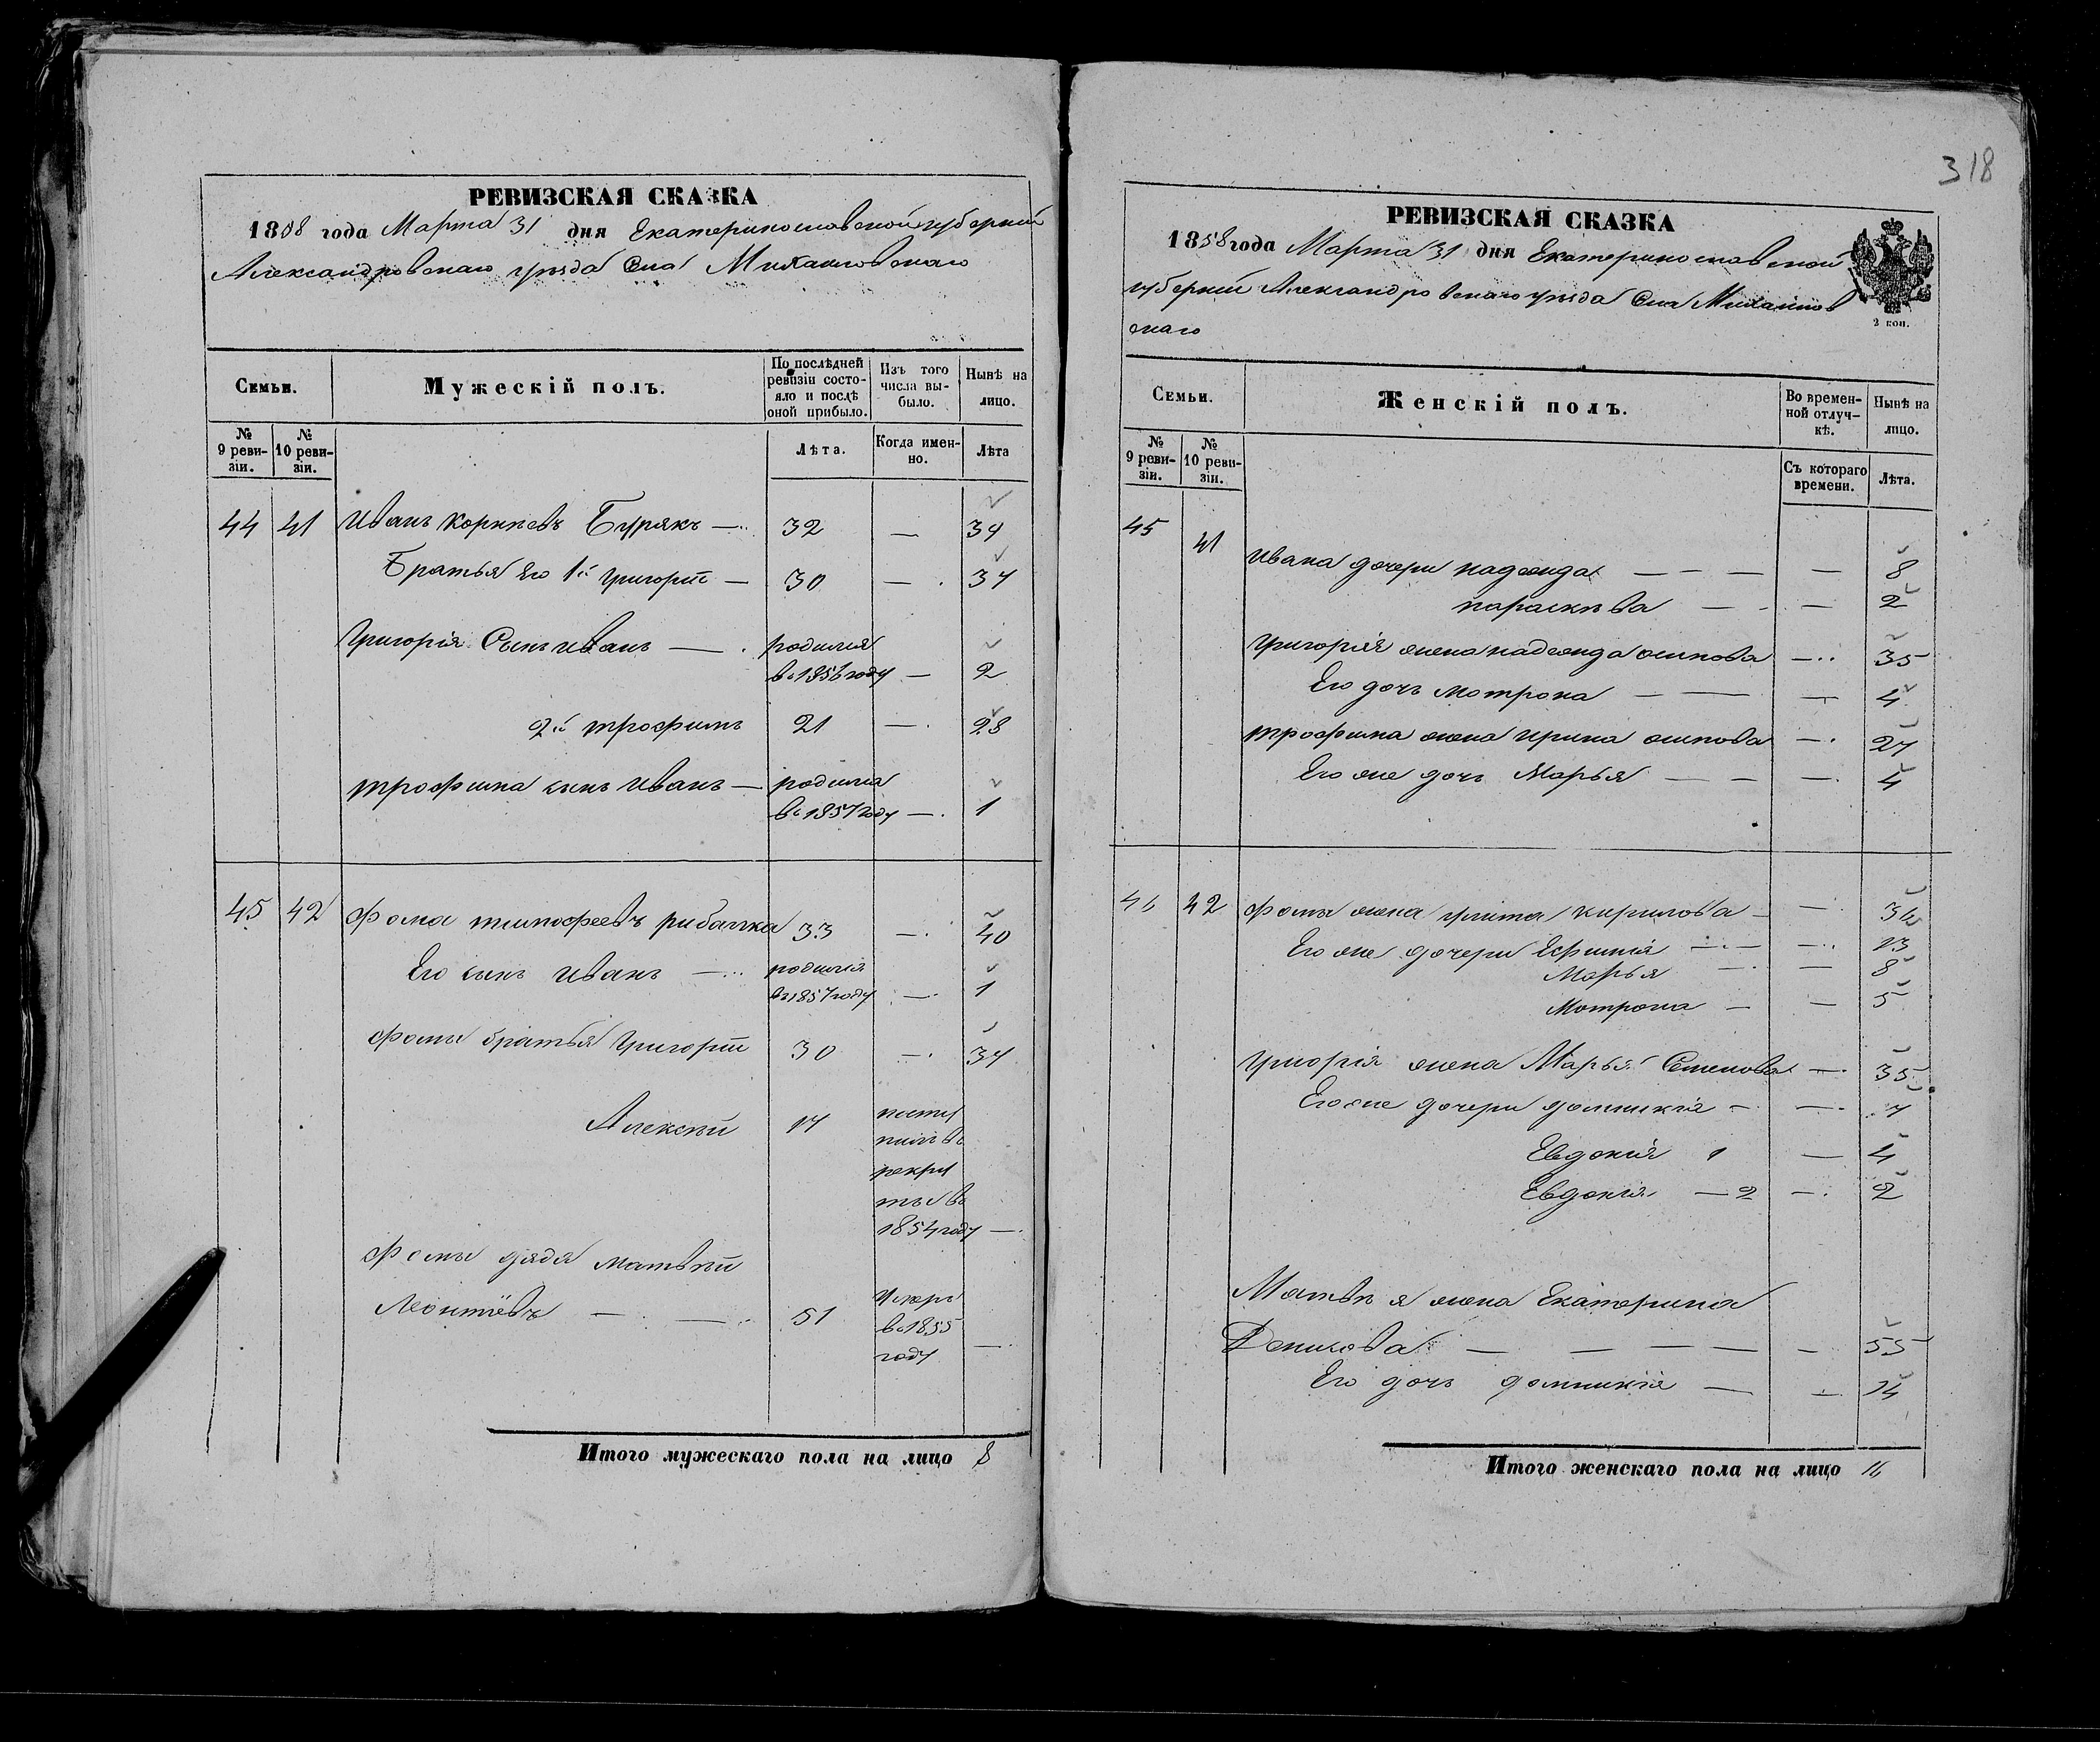 318
РЕВИЗСКАЯ СКАЗКА
1858 года Марта 31 дня Екатеринославской губернии
Александровскаго уѣзда Села Михайловскаго
Семьи.
Мужескій полъ.
По послѣдней ревизіи состо-
яло и послѣ оной прибыло.
Изъ того числа вы-
было.
Нынѣ на лицо.
№ 9 реви-
зіи.
№ 10 реви-
зіи.
Лѣта.
Когда имен-
но.
Лѣта
44 41 Иванъ Корнѣевъ Бурякъ — 32 — 39
Братья Его 1й Григорій — 30 — 37
Григорія Сынъ Иванъ — родился
въ 1856 году — 2
2й трофимъ 21 — 28
трофима сынъ Иванъ — родился
въ 1857 году — 1
45 42 Фома тимофеевъ рибалка 33 — 40
Его сынъ Иванъ — родился
въ 1857 году — 1
Фомы братья Григорій 30 — 37
Алексѣй 17 посту
пилъ въ
рекру
ты въ
1854 году —
Фомы дядя Матвѣй
Леонтіевъ — — 51 умеръ
въ 1855
году —
Итого мужескаго пола на лицо 8
РЕВИЗСКАЯ СКАЗКА
1858 года Марта 31 дня Екатеринославской
губерніи Александровскаго уѣзда Села Михайлов
скаго
2 коп.
Семьи.
Женскій полъ.
Во времен-
ной отлуч-
кѣ.
Нынѣ на лицо.
№ 9 реви-
зіи.
№ 10 реви-
зіи.
Съ котораго времени.
Лѣта.
45 41
Ивана дочери надежда — — — — 8
параскѣва — — 2
Григорія жена надежда осипова — 35
Его дочь мотрона — — — 4
трофима жена Ирина осипова — 27
Его же дочь Марья — — — 4
46 42 Фомы жена кирилова — —
Его же дочери Ефимія — — — 13
Марья — — 8
Мотрона — — 5
Григорія жена Марья Семенова — 35
Его же дочери домникія — — 7
Евдокія 1 — 4
Евдокія — 2 — 2
Матвѣя жена Екатерина
Денисова — — — — — 55
Его дочь домникія — — 14
Итого женскаго пола на лицо 16